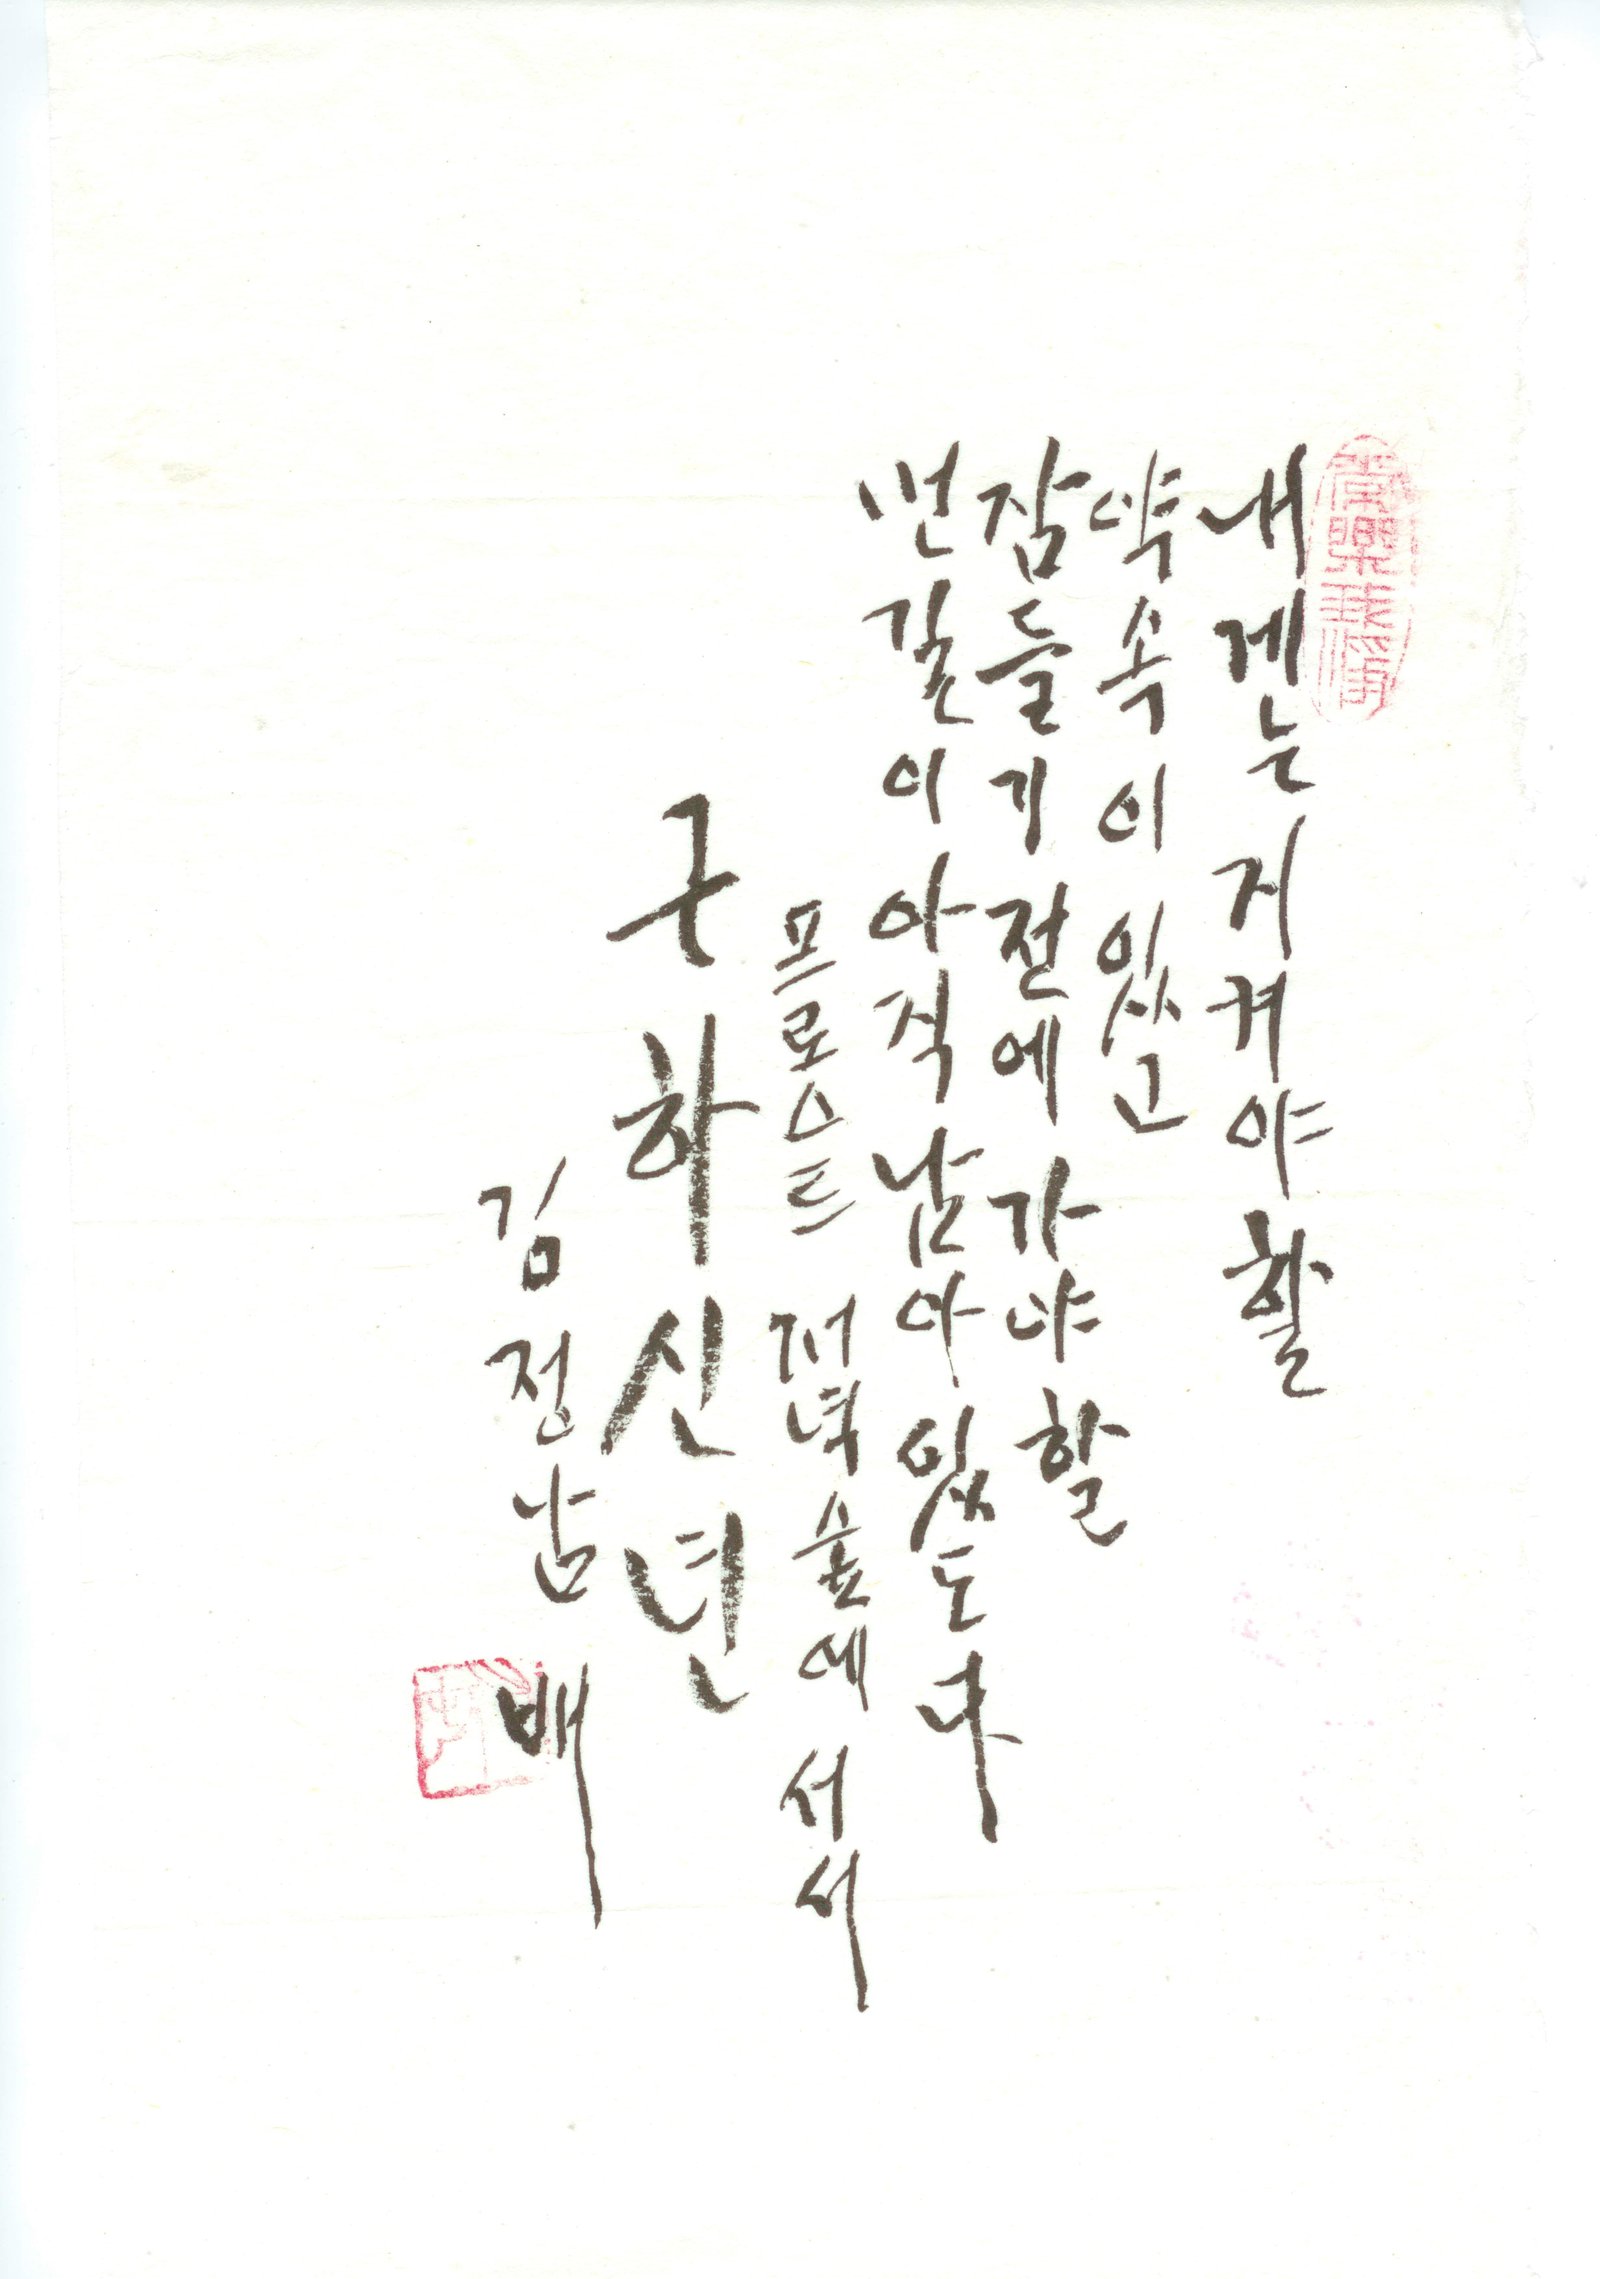 내겐는 지켜야 할
약속이 있고
잠들기 전에 가야 할
먼길이 아직 남아 있도다
프로스트 저녁 숲에 서서
근하신년
김정남 배